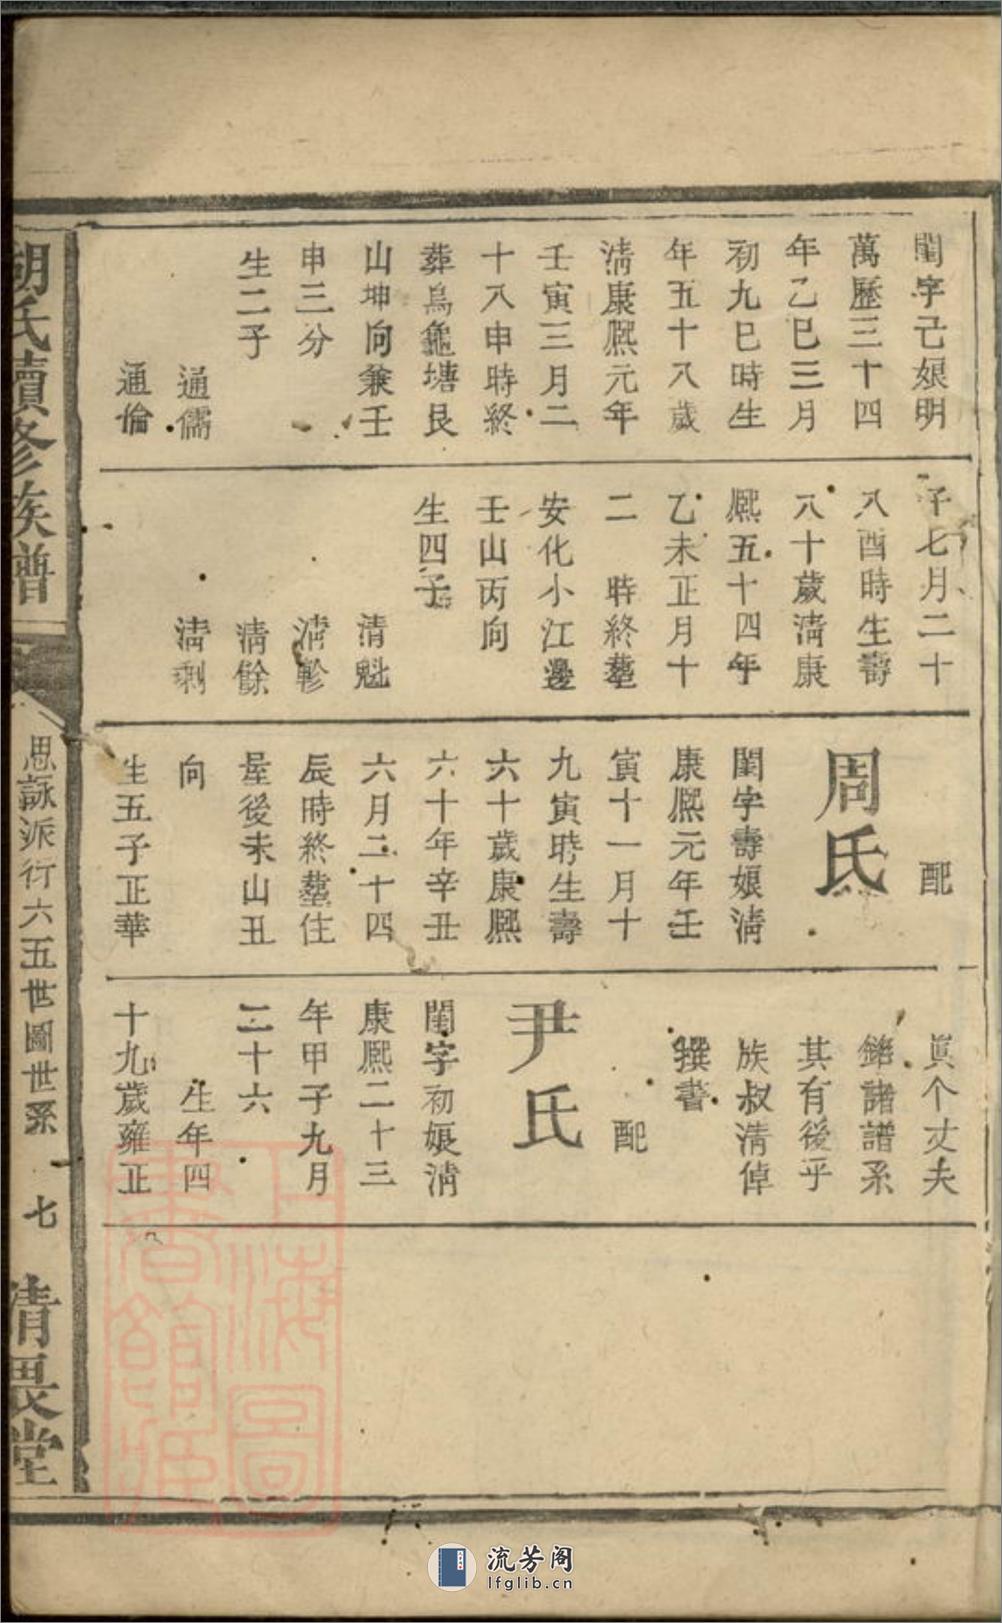 閨字己娘明
萬歷三十四
年乙巳三月
初九巳時生
年五十八歲
清康熙元年
壬寅三月二
十八申時終
葬烏龜塘艮
山坤向兼壬
申三分
生二子
通儒
通倫
子七月二十
八酉時生壽
八十歲清康
熙五十四年
乙未正月十
二 時終塟
安化小江邊
壬山丙向
生四子
清魁
清軫
清餘
清剩
配
周氏
閨字壽娘清
康熙元年壬
寅十一月十
九寅時生壽
六十歲康熙
六十年辛丑
六月二十四
辰時終塟住
屋後未山丑
向
生五子正華
眞个丈夫
銘諸譜系
其有後乎
族叔清倬
撰書
配
尹氏
閨字初娘清
康熙二十三
年甲子九月
二十六
生年四
十九歲雍正
胡氏續修族譜
思詠派行六五世圖世系
七
清畏堂
上海圖書館藏
流芳阁
lfglib.cn